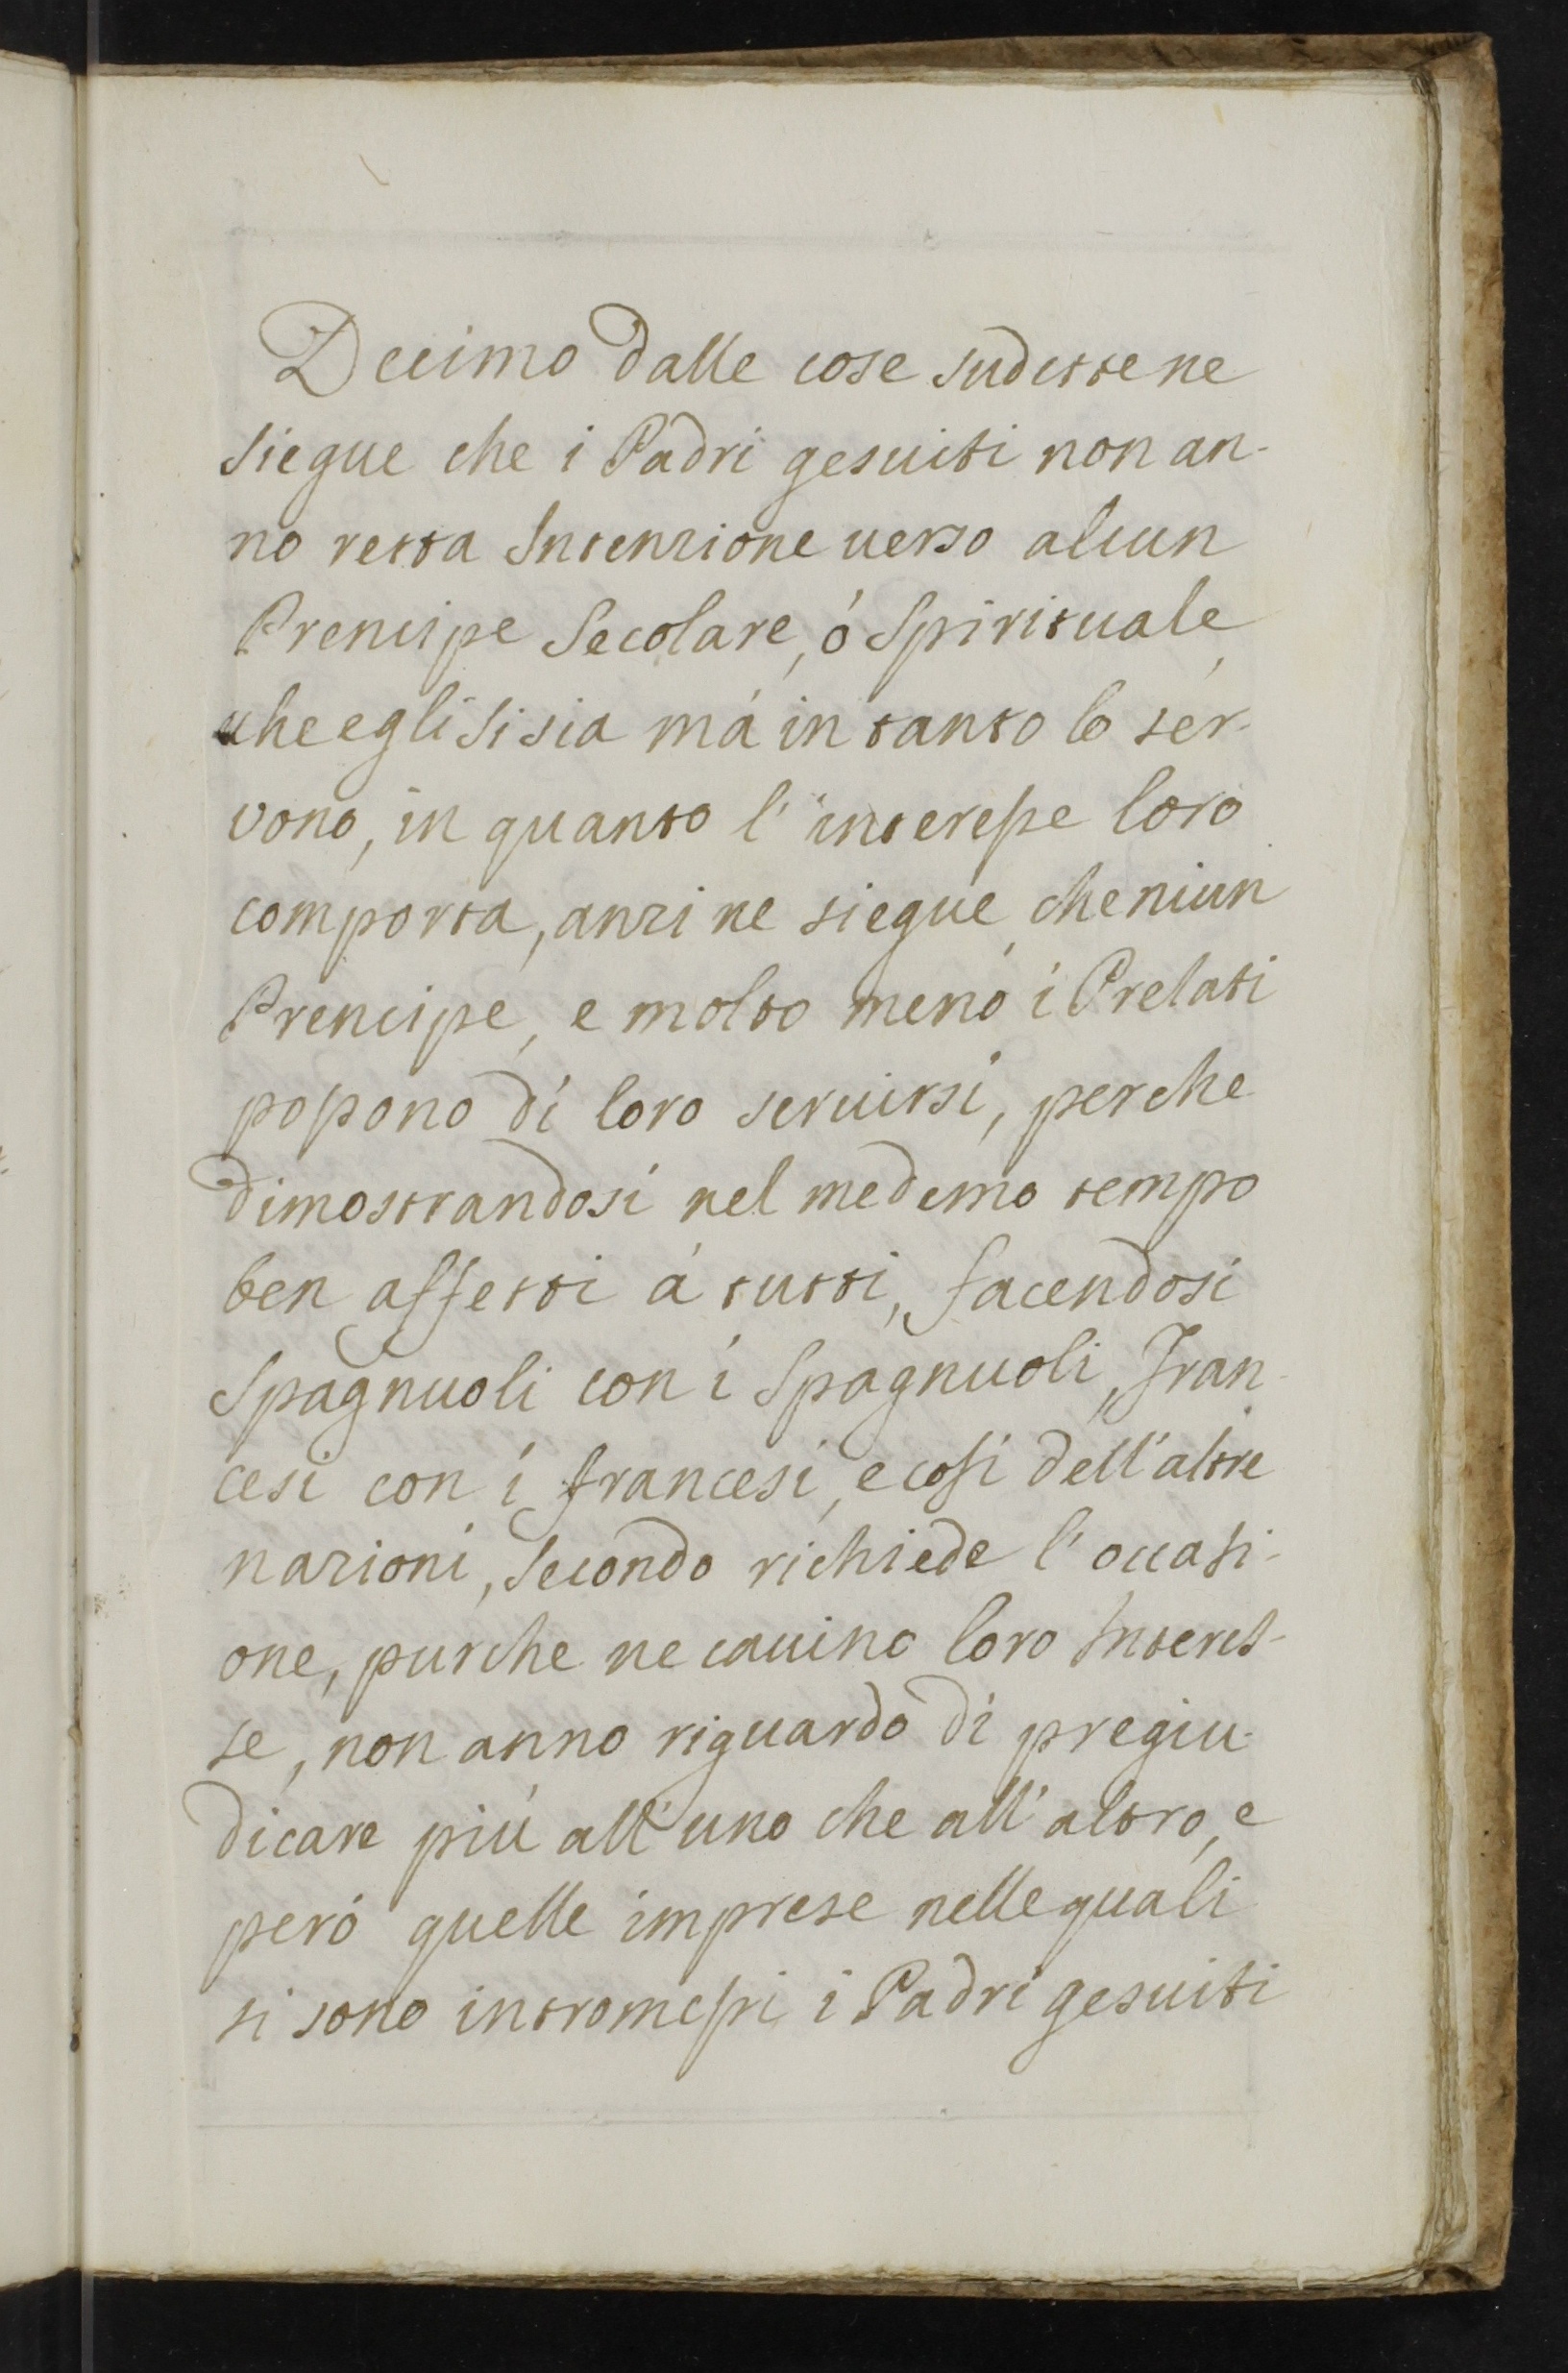 Decimo dalle cose sudette ne
siegue che i Padri gesuiti non an-
no retta Intenzione uerso alcun
Prencipe Secolare, ó Spirituale,
che egli si sia má in tanto lo ser-
vono, in quanto l' interesse loro
comporta, anzi ne siegue, che niun
Prencipe, e molto meno i Prelati
possono di loro seruirsi, perche
dimostrandosi nel medemo tempo
ben affetti á tutti, facendosi
Spagnuoli con i Spagnuoli, Fran-
cesi con i francesi, e cosi dell' altre
nazioni, secondo richiede l' occasi-
one, purche ne cauino loro Interes-
se, non anno riguardo di pregiu-
dicare piú all' uno che all' altro, e
peró quelle imprese nelle quali
si sono intromessi i Padri gesuiti